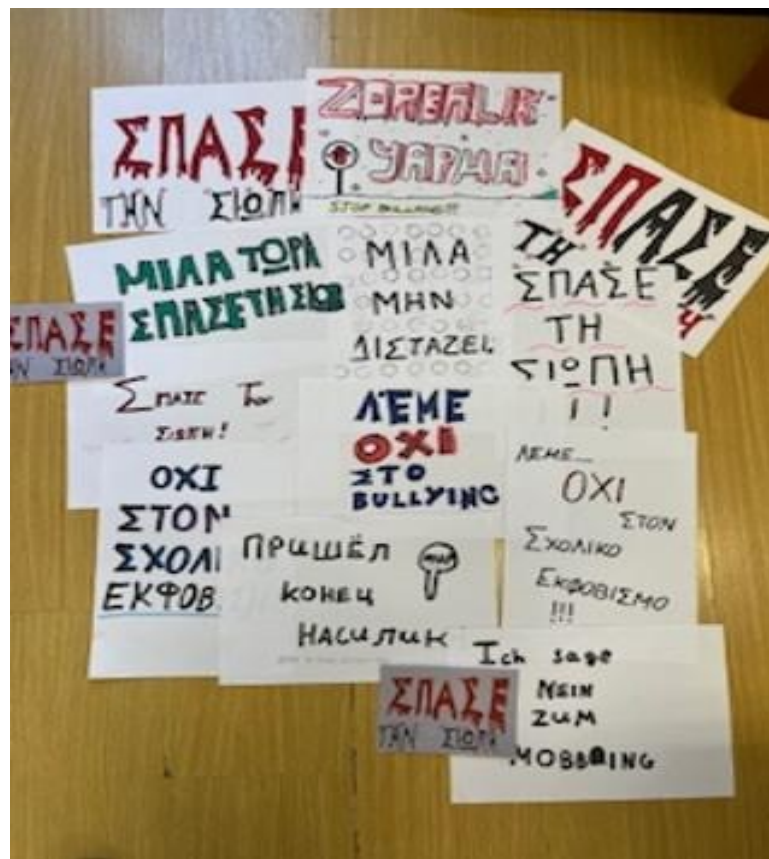 ΣΠΑΣΕ
ΤΗΝ ΣΙΩΠΗ
ZORBALIK
YAPMA
STOP BULLYING!!!
ΣΠΑΣΕ
ΤΗ
ΜΙΛΑ ΤΩΡΑ
ΣΠΑΣΕ ΤΗ ΣΙΩΠ
ΜΙΛΑ
ΜΗΝ
ΔΙΣΤΑΖΕΙΣ
ΣΠΑΣΕ
ΤΗ
ΣΙΩΠΗ
!!
ΣΠΑΣΕ
ΗΝ ΣΙΩΠΗ
ΣΠΑΣΕ Την
ΣΙΩΠΗ!
ΛΕΜΕ
ΟΧΙ
ΣΤΟ
BULLYING
ΛΕΜΕ...
ΟΧΙ
ΣΤΟΝ
ΣΧΟΛΙΚΟ
ΕΚΦΟΒΙΣΜΟ
!!!
ΟΧΙ
ΣΤΟΝ
ΣΧΟΛΙ
ΕΚΦΟΒ
ПРИШЁЛ
КОНЕЦ
НАСИЛИЮ
Ich sage
NEIN
ZUM
MOBBING
ΣΠΑΣΕ
ΤΗΝ ΣΙΩΠΗ